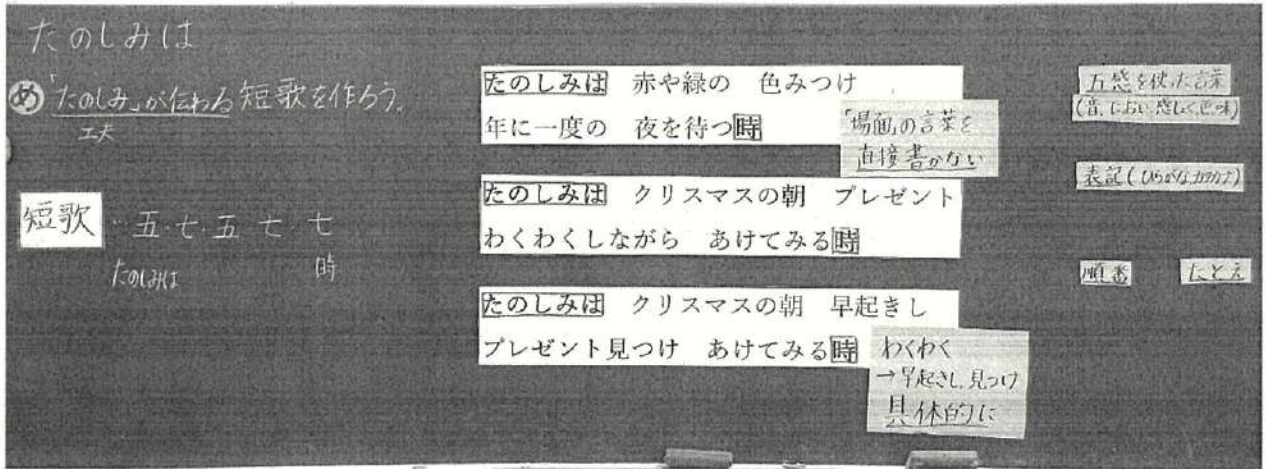 たのしみは
め 「たのしみ」が伝わる短歌を作ろう。
工夫
短歌…五・七・五 七・七
たのしみは 時
たのしみは 赤や緑の 色みつけ
年に一度の 夜を待つ時
「場面」の言葉を
直接書かない
たのしみは クリスマスの朝 プレゼント
わくわくしながら あけてみる時
たのしみは クリスマスの朝 早起きし
プレゼント見つけ あけてみる時
わくわく
→早起きし、見つけ
具体的に
五感を使った言葉
(音、におい、感しょく、色、味)
表記(ひらがな、カタカナ)
順番 たとえ